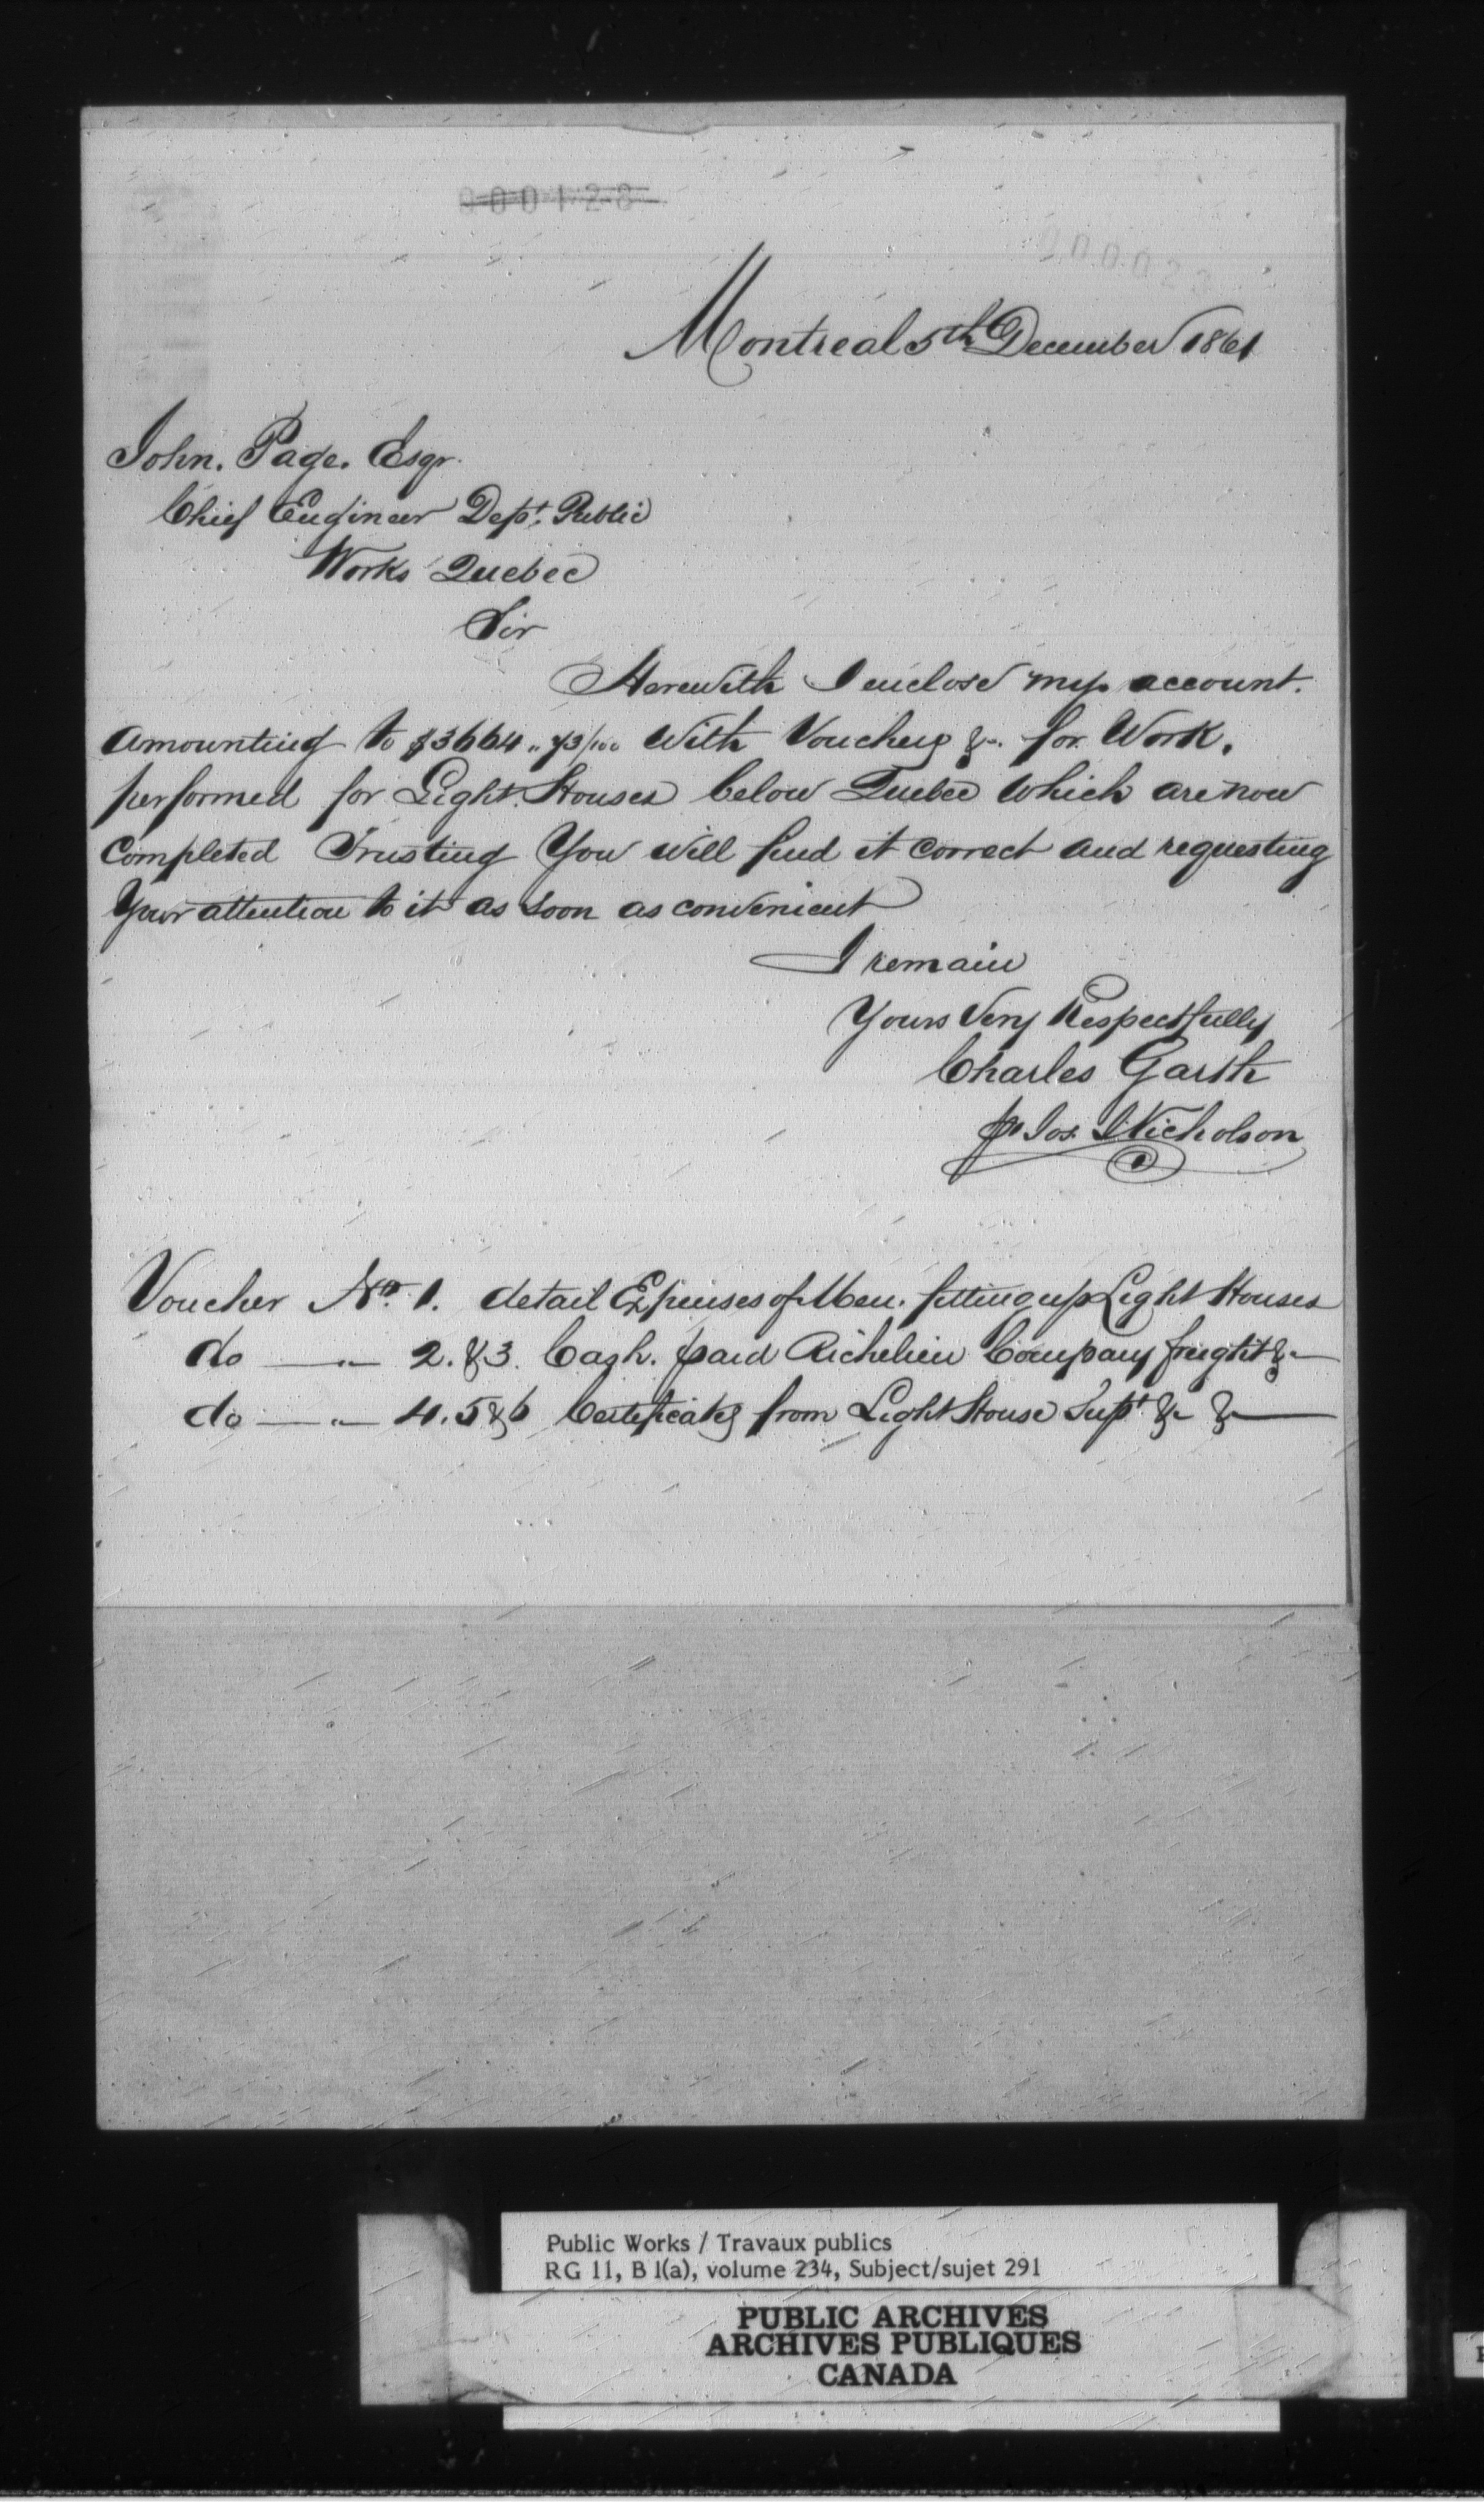 000128
000023
Montreal 5th December 1861
John. Page. Esqr.
Chief Engineer Dept. Public
Works Quebec
Sir
Herewith I enclose my account.
Amounting to $3664 „ 73/100 With Vouchers &c. for Work.
performed for Light Houses below Quebec which are now
Completed Trusting You will find it correct and requesting
Your attention to it as soon as convenient
I remain
Yours Very Respectfully
Charles Garth
p Jos. Nicholson
Voucher No. 1. detail Expenses of Men. fitting up Light Houses
do — „ — 2. & 3. Cash. paid Richelieu Company freight &c —
do — „ — 4. 5 & 6 Certificates from Light House Supt &c &c —
Public Works / Travaux publics
RG 11, B 1(a), volume 234, Subject/sujet 291
PUBLIC ARCHIVES
ARCHIVES PUBLIQUES
CANADA